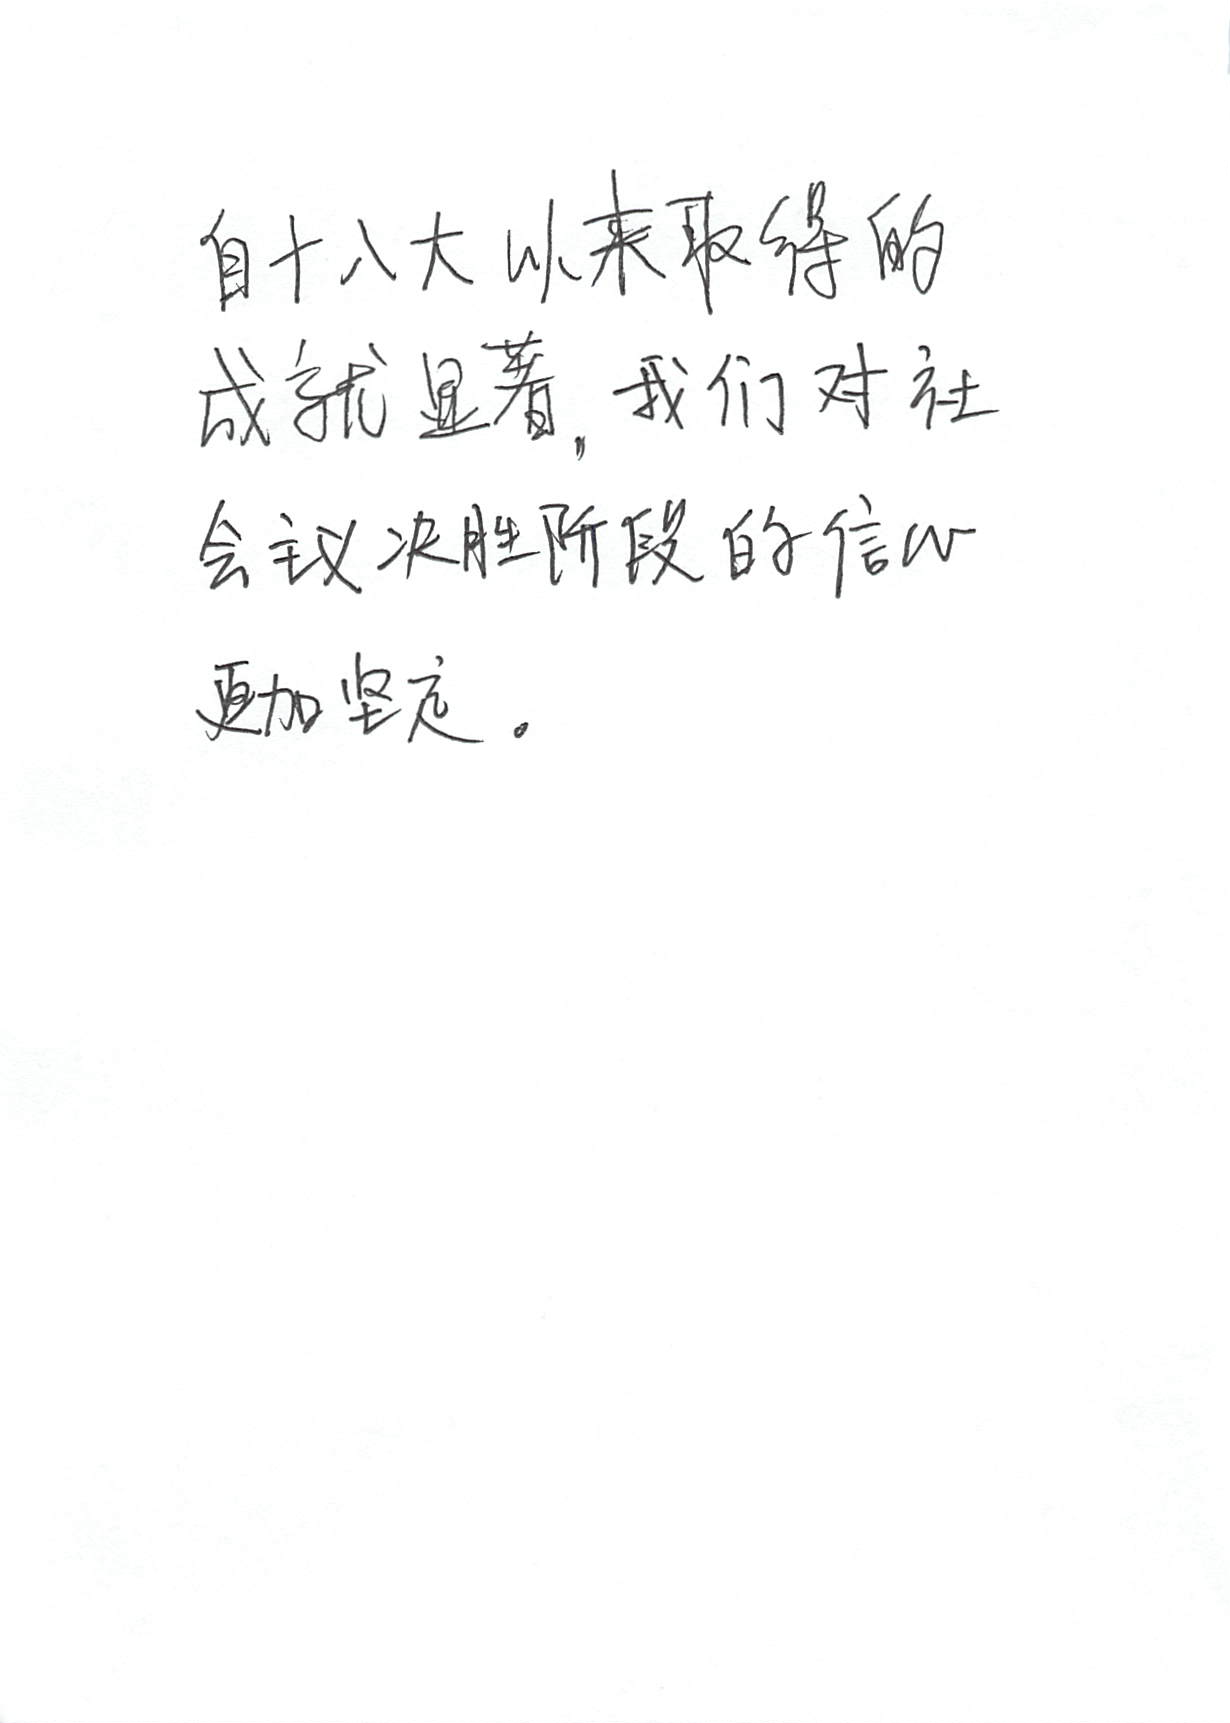 自十八大以来取得的
成就显著，我们对社
会主义决胜阶段的信心
更加坚定。